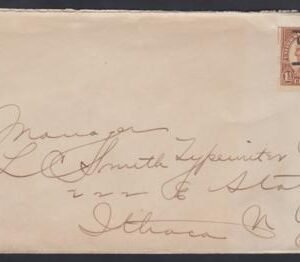 Manager
L C Smith Typewriter
222 E Sta
Ithaca N Y
1½